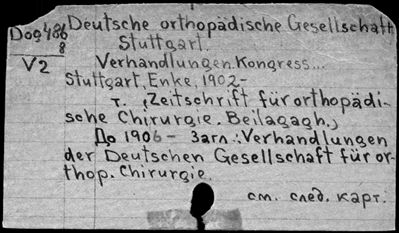 Deutsche orthopädische Gesellschaft
Дog486
8
Stuttgart.
V2
Verhandlungen. Kongress...
Stuttgart, Enke, 1902-
т. (Zeitschrift für orthopädi-
sche Chirurgie. Beilagagh.)
До 1906 - Загл.: Verhandlungen
der Deutschen Gesellschaft für or-
thop. Chirurgie.
см. след. карт.